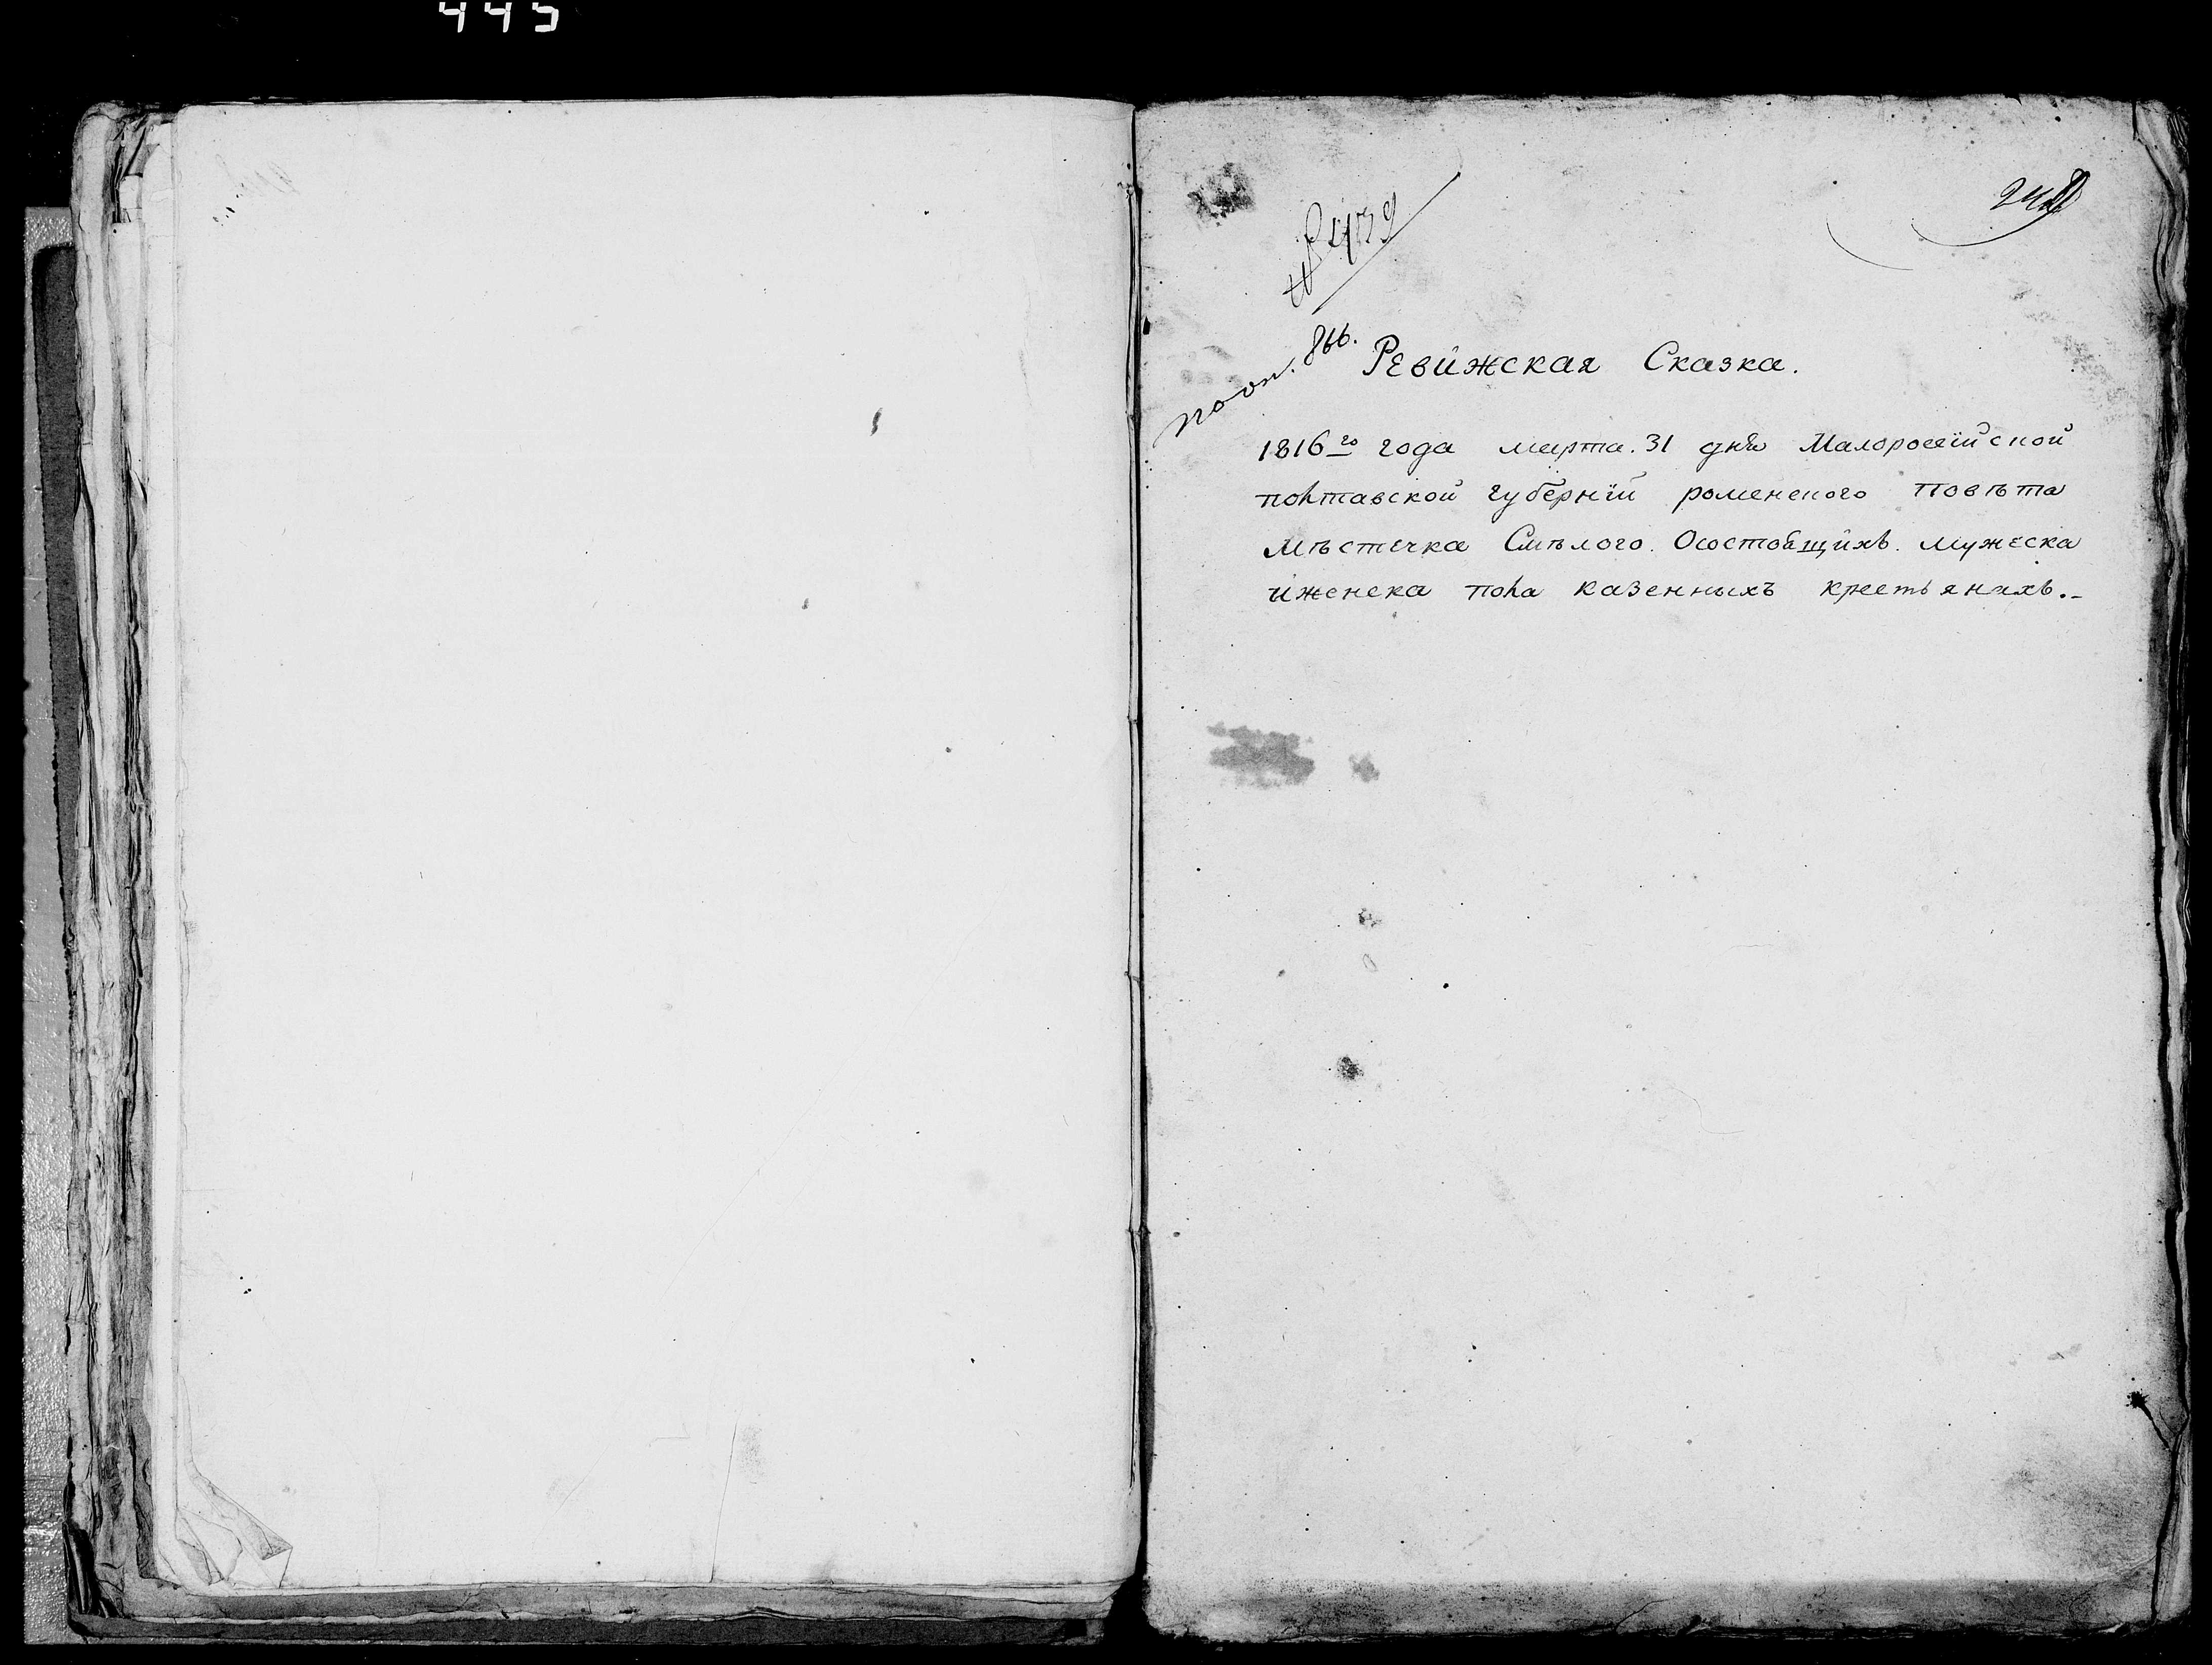 445
№ 4139
по оп. 866.
Ревижская Сказка.
1816го года марта. 31 дня Малоросѣйской
полтавской губернїи роменского повѣта
Мѣстечка Смѣлого. Осостоящихъ. мужеска
ѝженска пола казенныхъ крестьянахъ.-